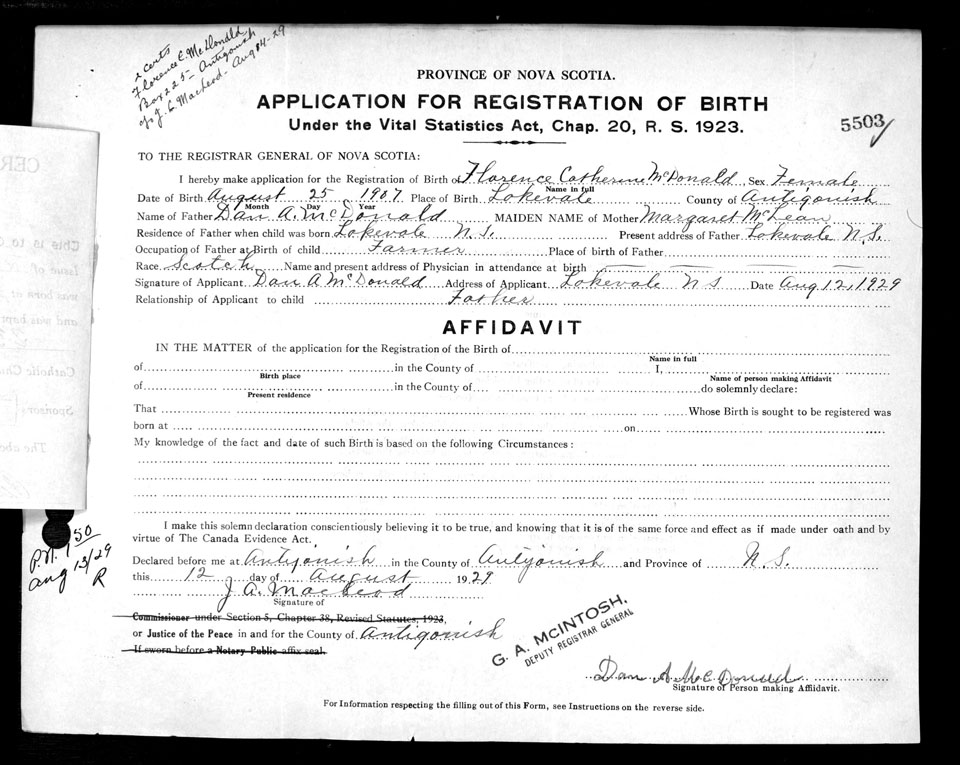 2 certs
Florence C. McDonald
Box 225 - Antigonish
c/o J. C. MacLeod - Aug 14-29
PROVINCE OF NOVA SCOTIA.
APPLICATION FOR REGISTRATION OF BIRTH
Under the Vital Statistics Act, Chap. 20, R. S. 1923.
5503
TO THE REGISTRAR GENERAL OF NOVA SCOTIA:
I hereby make application for the Registration of Birth of Florence Catherine McDonald Sex Female
Name in full
Date of Birth August 25 1907 Place of Birth Lakevale County of Antigonish
Month Day Year
Name of Father Dan A. McDonald MAIDEN NAME of Mother Margaret McLean
Residence of Father when child was born Lakevale N.S. Present address of Father Lakevale N.S.
Occupation of Father at Birth of child Farmer Place of birth of Father
Race Scotch Name and present address of Physician in attendance at birth
Signature of Applicant Dan A McDonald Address of Applicant Lakevale N S Date Aug 12, 1929
Relationship of Applicant to child Father
AFFIDAVIT
IN THE MATTER of the application for the Registration of the Birth of
Name in full
of in the County of I,
Birth place Name of person making Affidavit
of in the County of do solemnly declare:
Present residence
That Whose Birth is sought to be registered was
born at on
My knowledge of the fact and date of such Birth is based on the following Circumstances:
I make this solemn declaration conscientiously believing it to be true, and knowing that it is of the same force and effect as if made under oath and by
virtue of The Canada Evidence Act.
P.N. 1 50
Aug 13/29
R
Declared before me at Antigonish in the County of Antigonish and Province of N.S.
this 12 day of August 1929
J. A. MacLeod
Signature of
Commissioner under Section 5, Chapter 38, Revised Statutes, 1923,
or Justice of the Peace in and for the County of Antigonish
If sworn before a Notary Public affix seal.
G. A. MCINTOSH.
DEPUTY REGISTRAR GENERAL
Dan A. McDonald
Signature of Person making Affidavit.
For Information respecting the filling out of this Form, see Instructions on the reverse side.